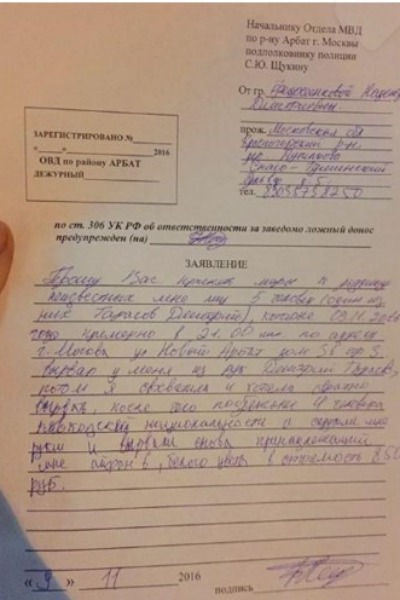 Начальнику Отдела МВД
по р-ну Арбат г. Москвы
подполковнику полиции
С.Ю. Щукину
От гр.
прож. Московская обл
р-н.
тел.
ЗАРЕГИСТРИРОВАНО №
«    »            2016
ОВД по району АРБАТ
ДЕЖУРНЫЙ
по ст. 306 УК РФ об ответственности за заведомо ложный донос
предупрежден (на)
ЗАЯВЛЕНИЕ
Прошу Вас принять меры к
неизвестных мне лиц 5 человек (один из
них Тарасов Дмитрий), которые
года примерно в 21.00 мин по адресу
г. Москва ул Новый Арбат дом 36 стр 3
вырвал у меня из рук Дмитрий Тарасов,
потом я схватила и хотела обратно
вырвать, после чего 4 человека
национальности и мне
руки и вырвали снова принадлежащий
мне айфон 6, белого цвета стоимость
руб.
« 9 » 11 2016
подпись